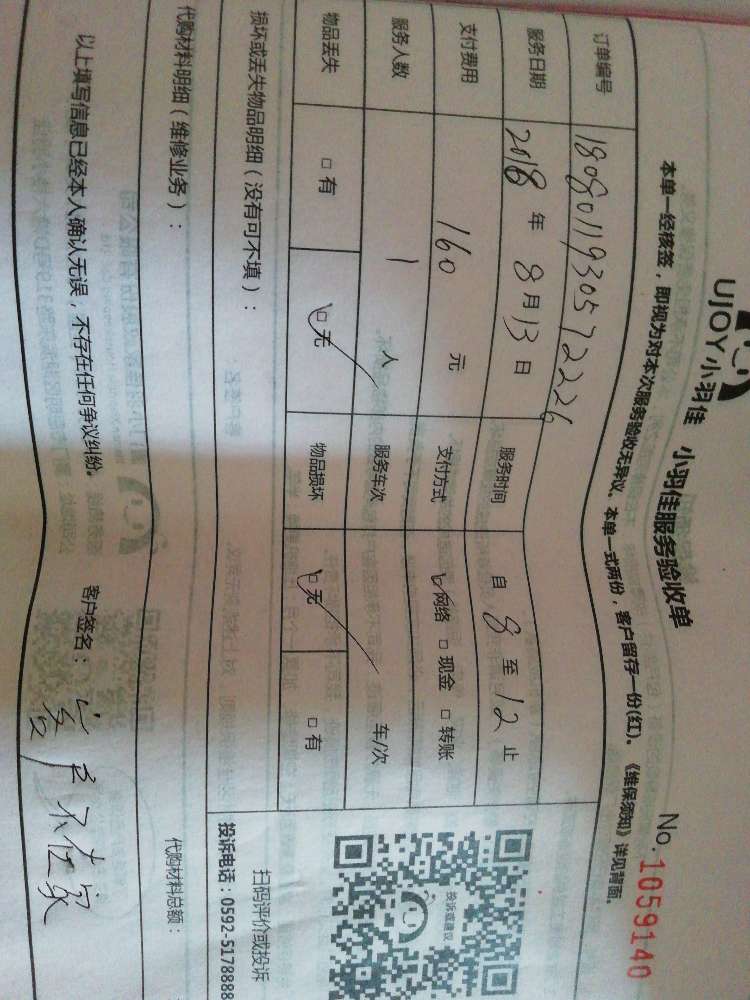 UJOY小羽佳 小羽佳服务验收单
No.1059140
本单一经核签，即视为对本次服务验收无异议。本单一式两份，客户留存一份(红)。《维保须知》详见背面。
订单编号 1808011930572226
服务日期 2018年8月13日 服务时间 自8至12止
支付费用 160元 支付方式 网络 现金 转账
服务人数 1人 服务车次 车/次
物品丢失 有 无 物品损坏 无 有
投诉或建议
扫码评价或投诉
投诉电话：0592-5178888
损坏或丢失物品明细（没有可不填）：
代购材料明细（维修业务）： 代购材料总额：
以上填写信息已经本人确认无误，不存在任何争议纠纷。 客户签名：客户不在家